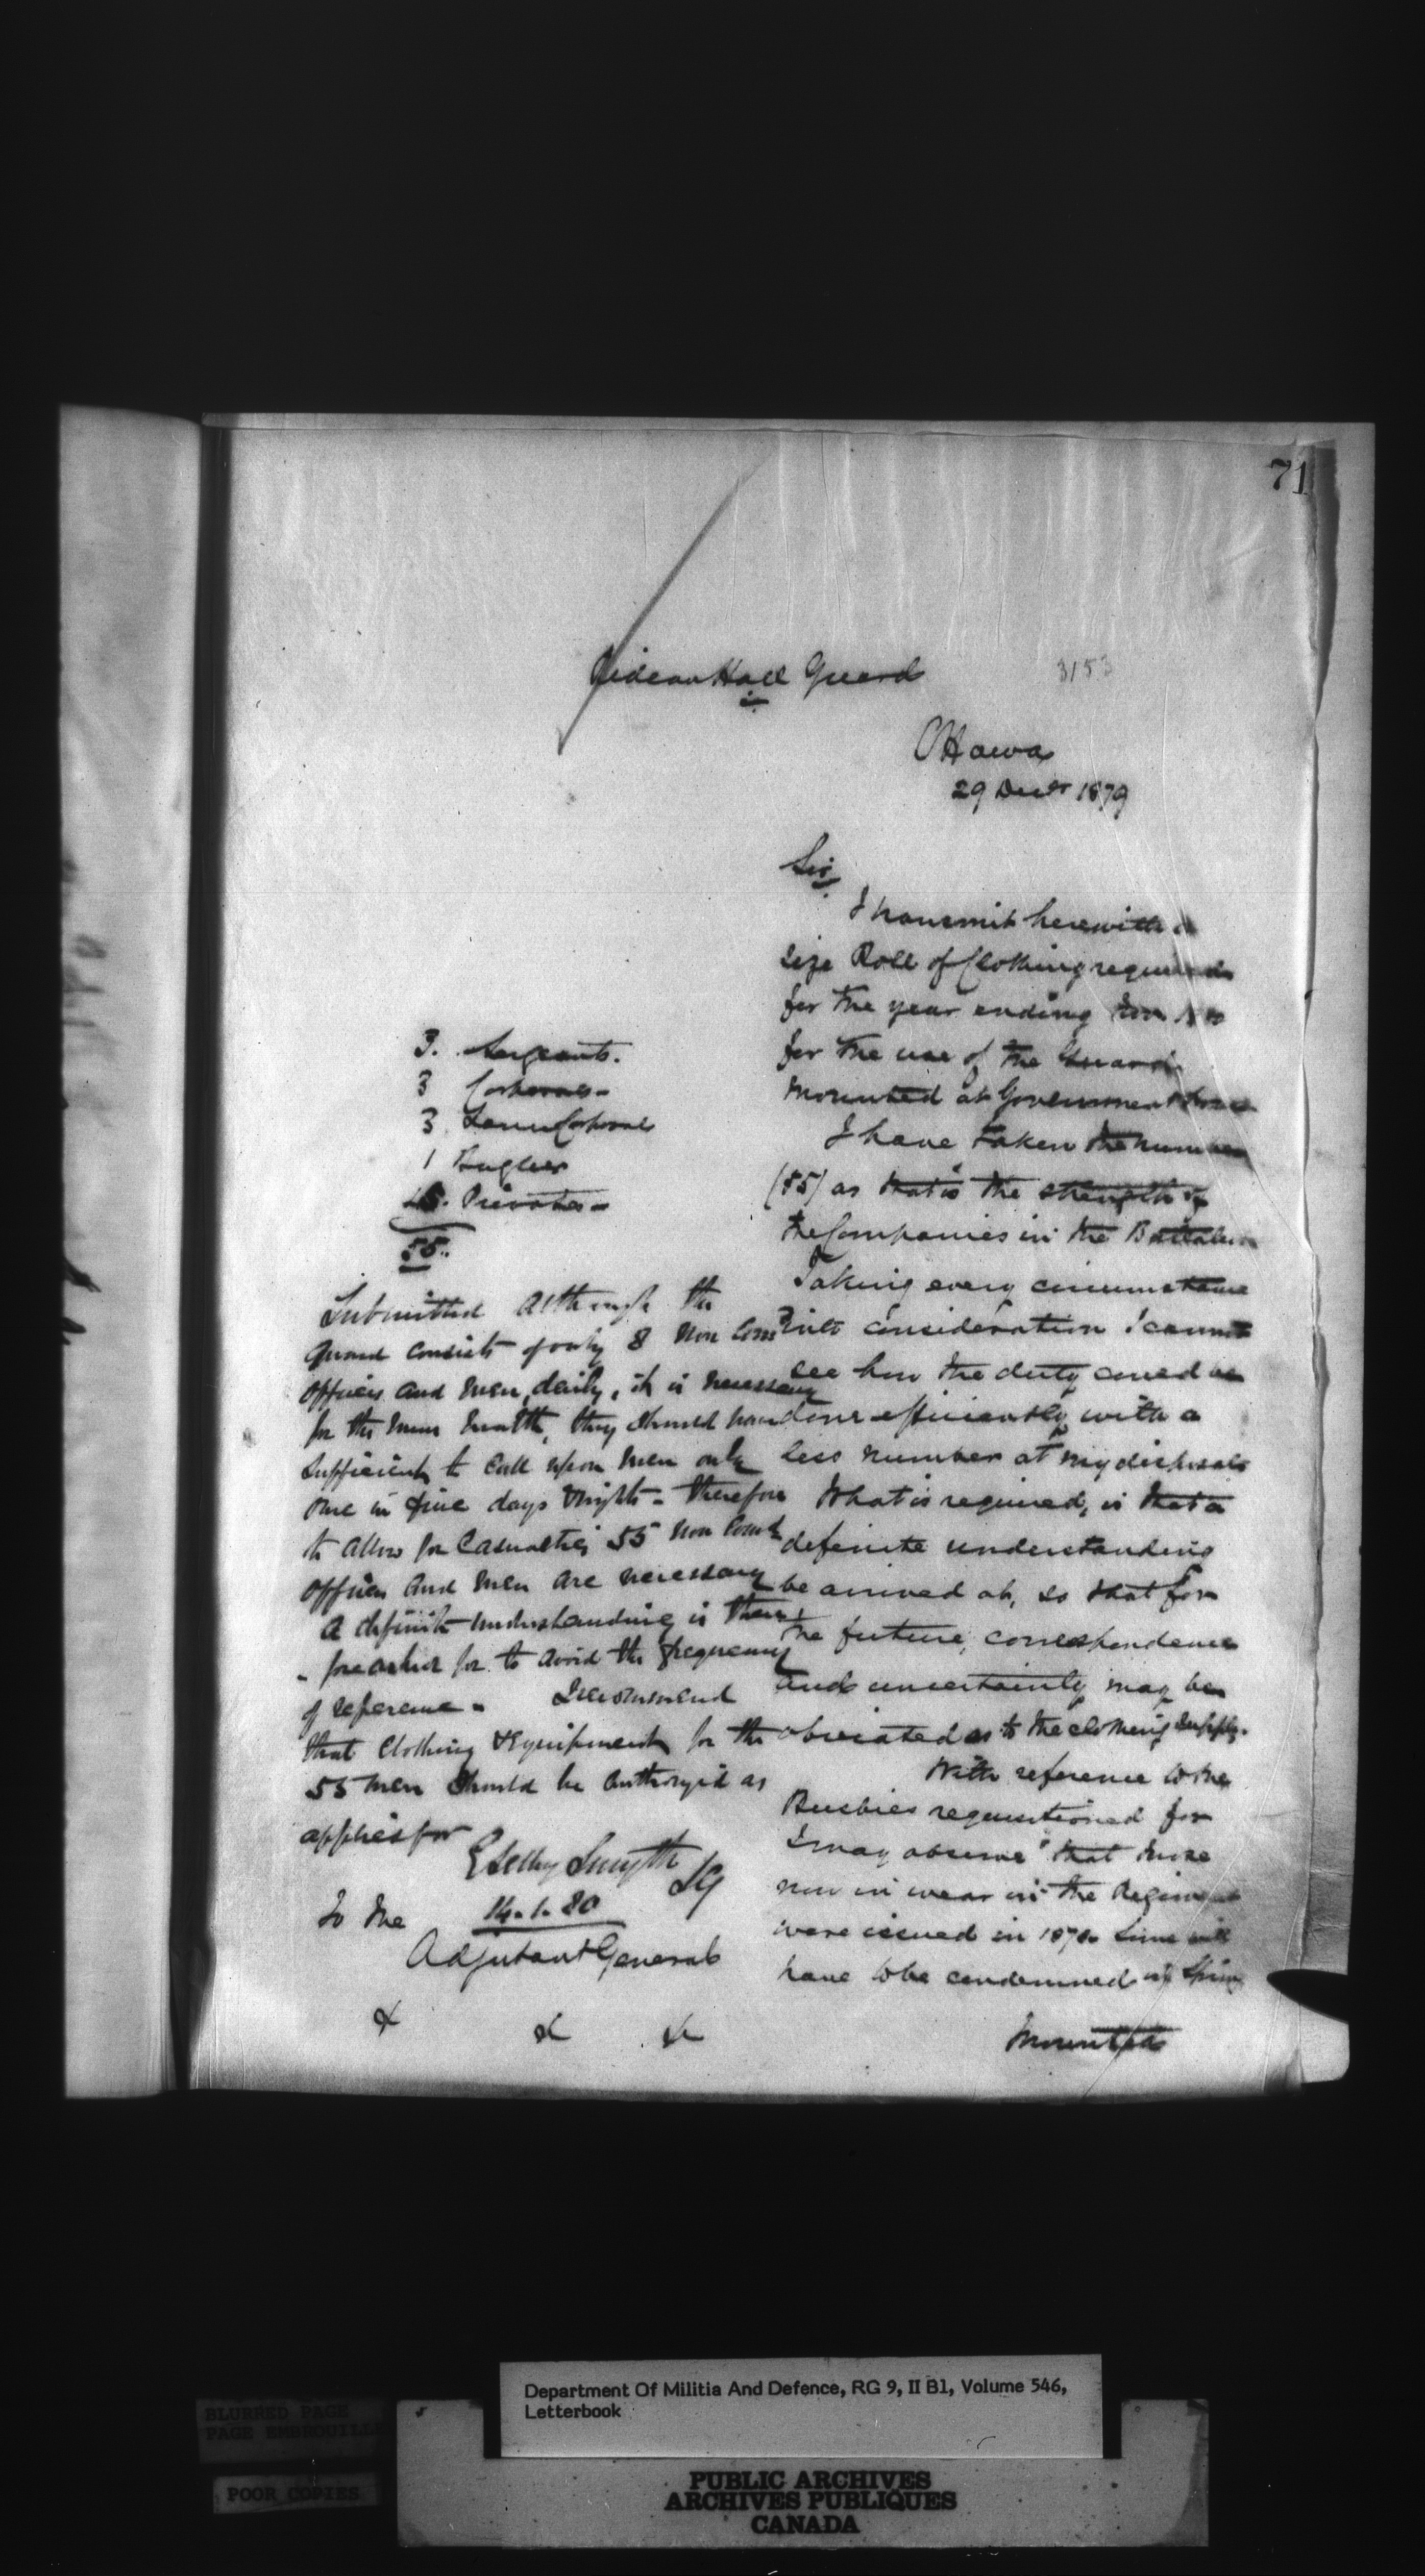 71
Rideau Hall Guard
3153
Ottawa
29 Decr 1879
Sir
I transmit herewith a
size Roll of Clothing required
for the year ending
for the use of the Guard
mounted at Government House
I have taken the number
(55) as that is the strength of
the Companies in the Battalion
Taking every circumstance
into consideration I cannot
see how the duty could be
done efficiently with a
less number at my disposal
What is required, is that a
definite understanding
be arrived at, so that for
the future, correspondence
and uncertainty may be
obviated as to the clothing supply.
With reference to the
Busbies requisitioned for
I may observe that those
now in wear in the Regiment
were issued in 1870
have to be condemned
mounted
3. Sergeants.
3 Corporals
3 Lance Corporals
1 Bugler
45. Privates
55.
Submitted Although the
Guard consists of only 8 Non Comd
Officers and Men, daily, it is necessary
for the mens health, they should have
sufficient to call upon men only
one in five days & nights - therefore
to allow for Casualties 55 Non Comd
Officers and Men are necessary
A definite understanding is there
- fore asked for to avoid the frequency
of reference - I recommend
that Clothing & Equipment for the
55 men should be authorized as
applied for
E Selby Smyth LG
14.1.80
To the
Adjutant General
& & &
Department Of Militia And Defence, RG 9, II B1, Volume 546,
Letterbook
BLURRED PAGE
PAGE EMBROUILLÉ
POOR COPIES
PUBLIC ARCHIVES
ARCHIVES PUBLIQUES
CANADA